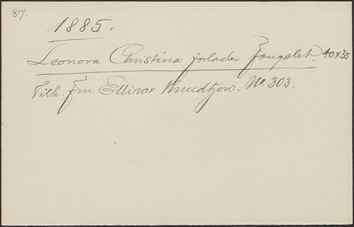 87.
1885.
Leonora Christina forlader Fængslet. 40x35
Tilh. Frn Ellinor Knudtzon. No 303.